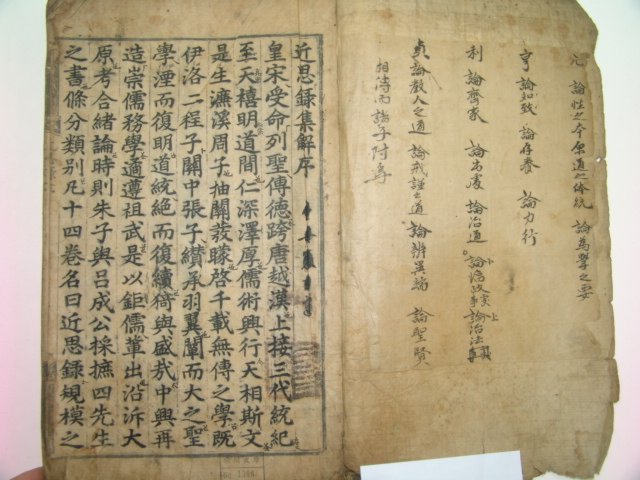 元 論性之本原道之体統 論為學之要
亨 論知致 論存養 論力行
利 論齊家 論出處 論治道 論治法
貞 論教人之道 論戒謹之道 論辨異端 論聖賢
相傳而諸子附焉
近思録集解序
皇宋受命列聖傳德跨唐越漢上接三代統紀
至天禧明道間仁深澤厚儒術興行天相斯文
是生濂溪周子抽關發矇啓千載無傳之學既
伊洛二程子關中張子纘承羽翼闡而大之聖
學湮而復明道統絶而復續猗與盛㢤中興再
造崇儒務學遹遵祖武是以鉅儒軰出沿泝大
原考合緒論時則朱子與呂成公採摭四先生
之書條分類别凡十四卷名曰近思録規模之